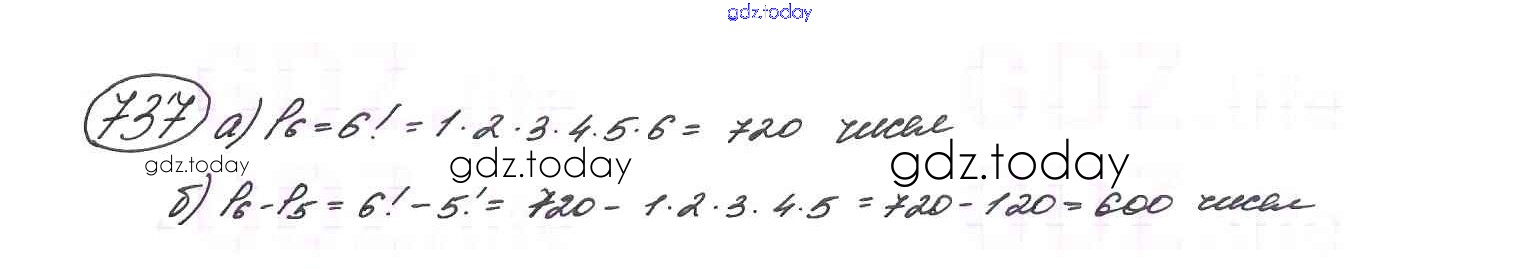 gdz.today
737 а) P₆ = 6! = 1·2·3·4·5·6 = 720 чисел
gdz.today gdz.today gdz.today
б) P₆ - P₅ = 6! - 5! = 720 - 1·2·3·4·5 = 720 - 120 = 600 чисел